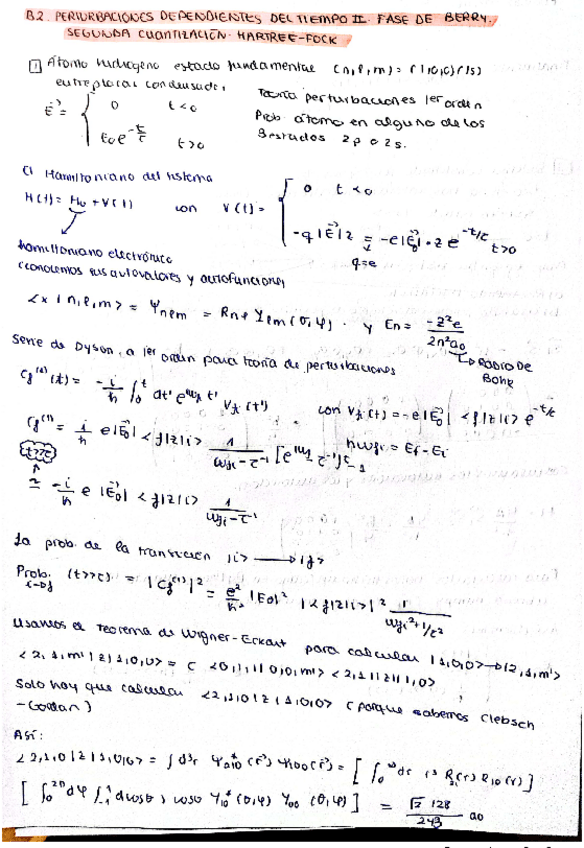 B2. PERTURBACIONES DEPENDIENTES DEL TIEMPO II. FASE DE BERRY.
SEGUNDA CUANTIZACIÓN. HARTREE-FOCK
1 Átomo hidrógeno estado fundamental (n,l,m) = (1,0,0) (1s)
entre placas condensador
Teoría perturbaciones 1er orden
Prob átomo en alguno de los
3 estados 2p o 2s.
E = { 0 t<0
E0 e^{-t/τ} t>0
El Hamiltoniano del sistema
H(t) = H0 + V(t) con V(t) = { 0 t<0
-q|E|z = -e|E0|·z e^{-t/τ} t>0
q=e
hamiltoniano electrónico
(conocemos sus autovalores y autofunciones
<x|n,l,m> = Ψnlm = Rnl Ylm(θ,φ). y En = -Z²e / 2n²a0
RADIO DE
BOHR
Serie de Dyson, a 1er orden para teoría de perturbaciones
Cf^(1)(t) = -i/ħ ∫0^t dt' e^{iωfi t'} Vfi(t') con Vfi(t) = -e|E0| <f|z|i> e^{-t/τ}
ħωfi = Ef - Ei
Cf^(1) = i/ħ e|E0| <f|z|i> 1/(ωfi - τ^-1)
t>>τ
≃ -i/ħ e |E0| <f|z|i> 1/(ωfi - τ^-1)
La prob. de la transición |i> → |f>
Prob. i→f (t>>τ) = |Cf^(1)|² = e²/ħ² |E0|² |<f|z|i>|² 1/(ωfi² + 1/τ²)
Usamos el Teorema de Wigner-Eckart para calcular |1,0,0> → |2,1,m'>
<2,1,m'|z|1,0,0> = C <0,1,1|0,0,m'> <2,1||z||1,0>
Solo hay que calcular <2,1,0|z|1,0,0> (porque sabemos Clebsch
-Gordan)
Así:
<2,1,0|z|1,0,0> = ∫d³r Ψ210*(r) Ψ100(r) = [∫0^∞ dr r³ R21(r) R10(r)]
[∫0^{2π} dφ ∫-1^1 dcosθ cosθ Y10*(θ,φ) Y00(θ,φ)] = √2 128 / 243 a0